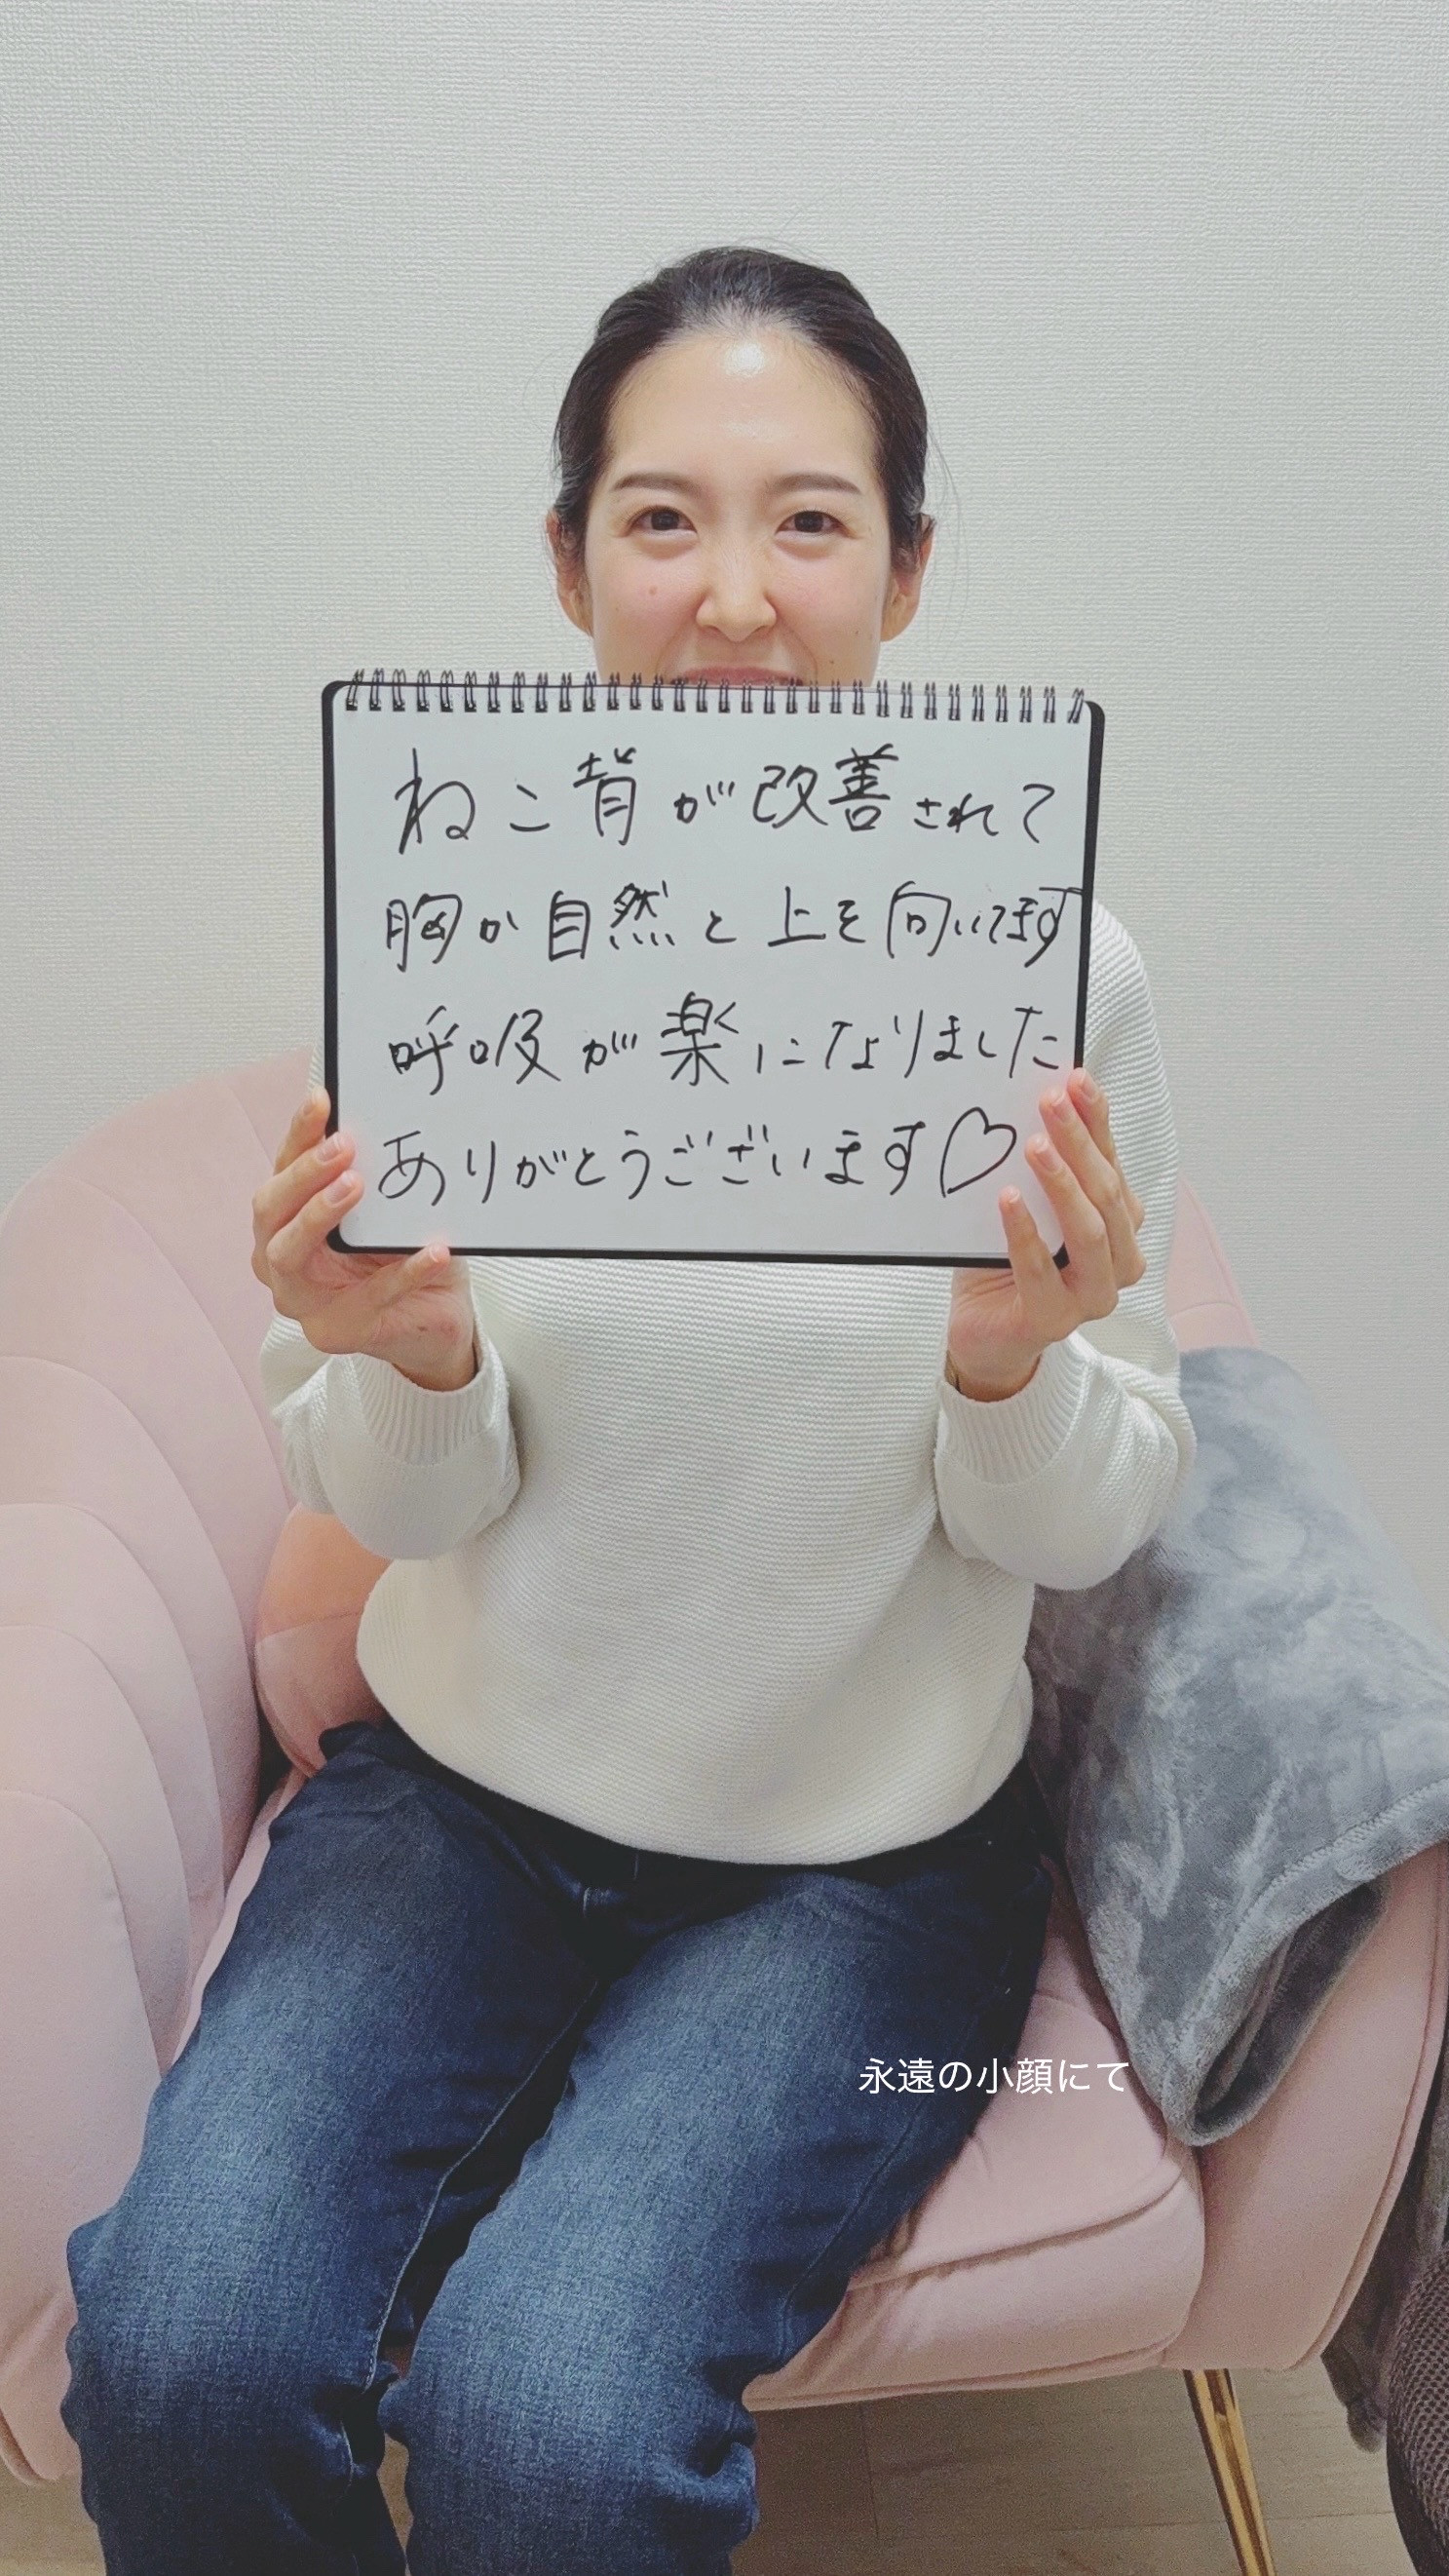 ねこ背が改善されて
胸が自然と上を向いてます
呼吸が楽になりました
ありがとうございます♡
永遠の小顔にて